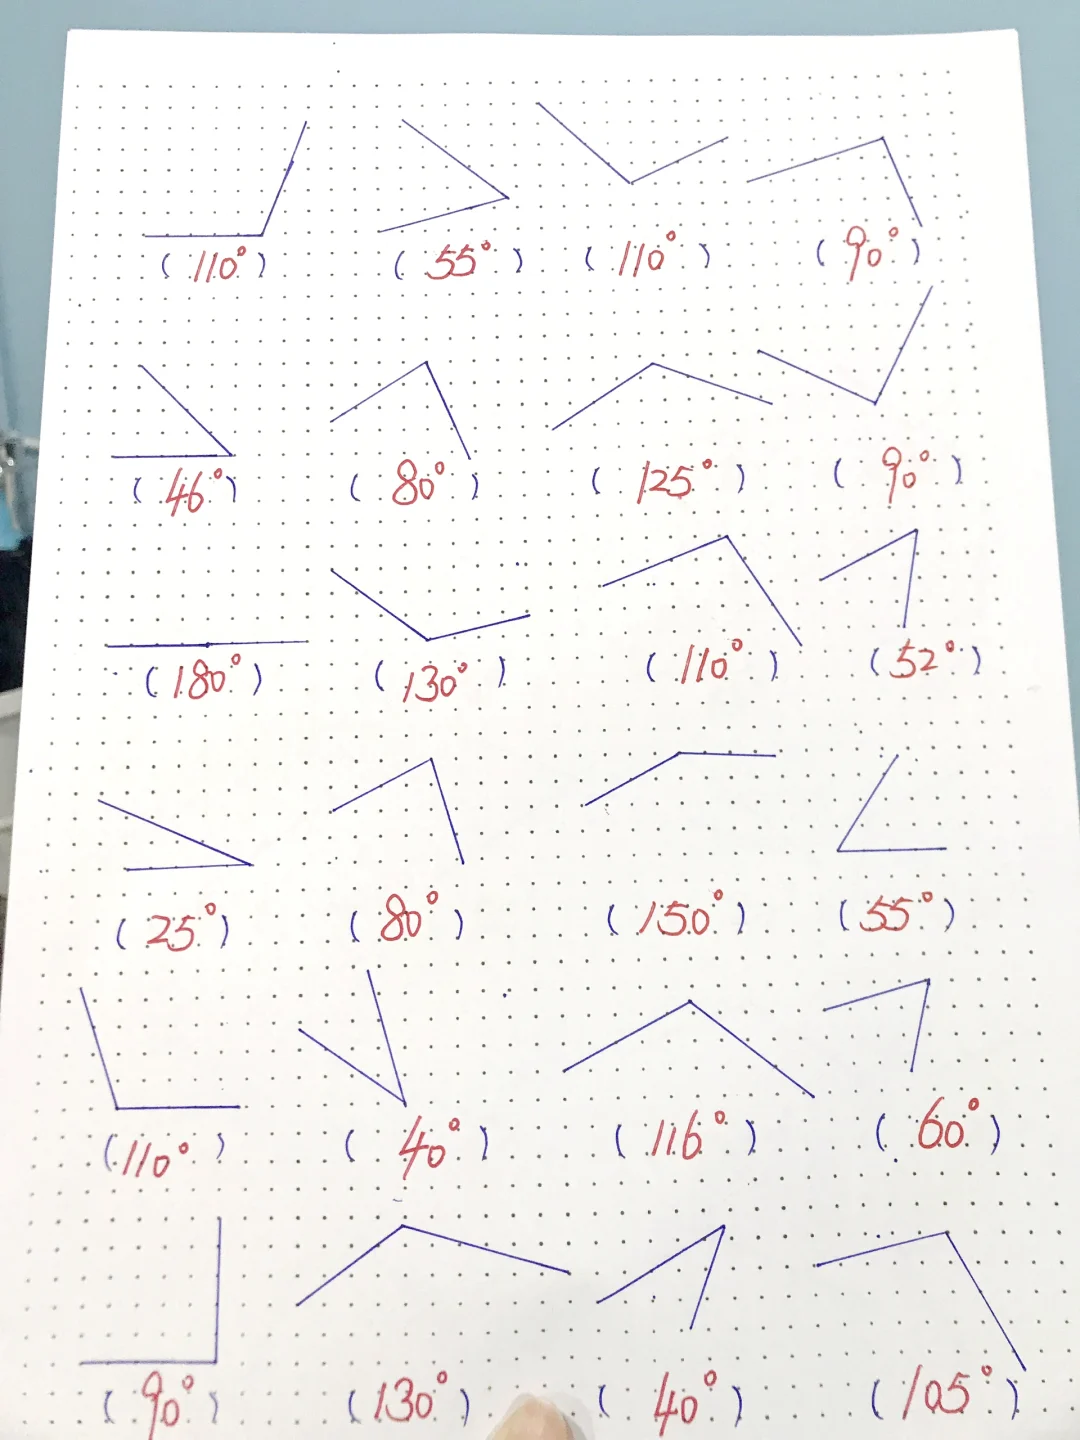 (110°) (55°) (110°) (90°)
(46°) (80°) (125°) (90°)
(180°) (130°) (110°) (52°)
(25°) (80°) (150°) (55°)
(110°) (40°) (116°) (60°)
(90°) (130°) (40°) (105°)